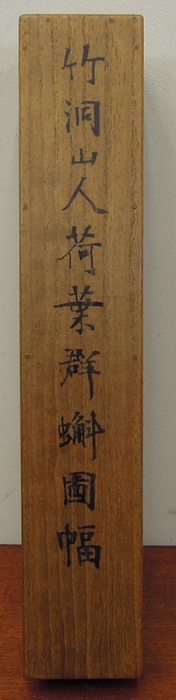 竹洞山人荷葉群蠏圖幅